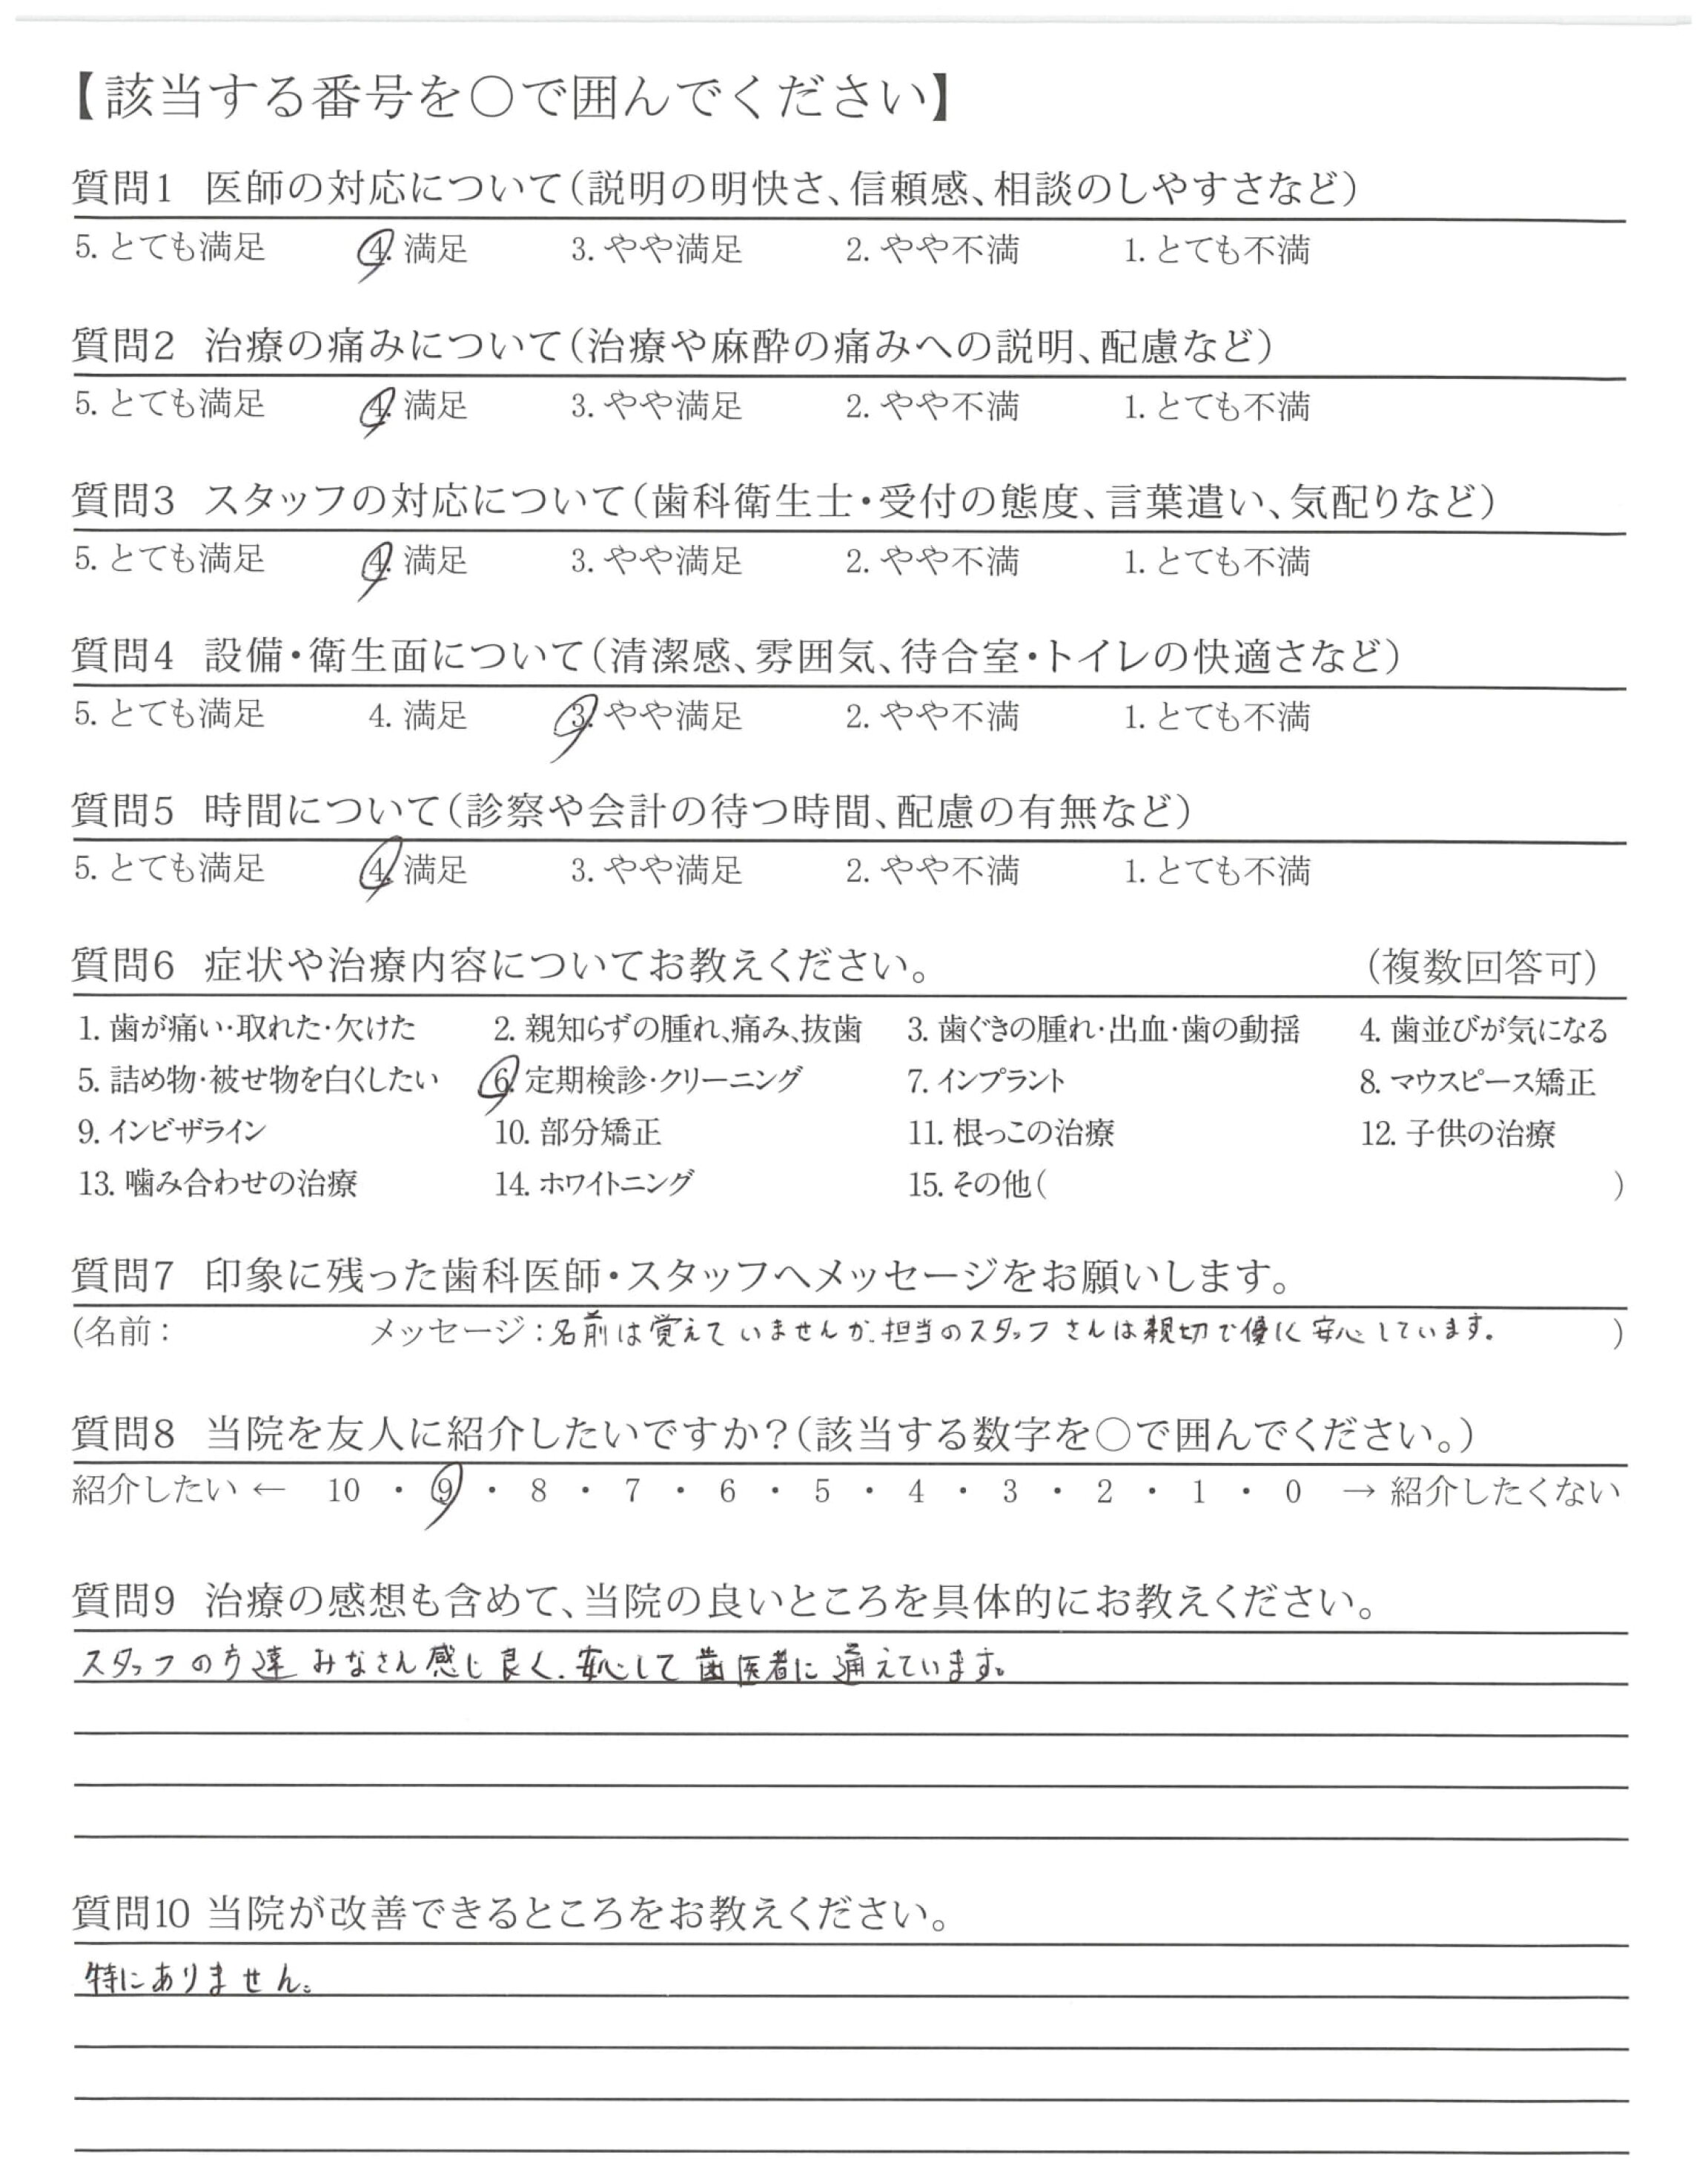 【該当する番号を○で囲んでください】
質問1 医師の対応について（説明の明快さ、信頼感、相談のしやすさなど）
5. とても満足 4. 満足 3. やや満足 2. やや不満 1. とても不満
質問2 治療の痛みについて（治療や麻酔の痛みへの説明、配慮など）
5. とても満足 4. 満足 3. やや満足 2. やや不満 1. とても不満
質問3 スタッフの対応について（歯科衛生士・受付の態度、言葉遣い、気配りなど）
5. とても満足 4. 満足 3. やや満足 2. やや不満 1. とても不満
質問4 設備・衛生面について（清潔感、雰囲気、待合室・トイレの快適さなど）
5. とても満足 4. 満足 3. やや満足 2. やや不満 1. とても不満
質問5 時間について（診察や会計の待つ時間、配慮の有無など）
5. とても満足 4. 満足 3. やや満足 2. やや不満 1. とても不満
質問6 症状や治療内容についてお教えください。 （複数回答可）
1. 歯が痛い・取れた・欠けた 2. 親知らずの腫れ、痛み、抜歯 3. 歯ぐきの腫れ・出血・歯の動揺 4. 歯並びが気になる
5. 詰め物・被せ物を白くしたい 6. 定期検診・クリーニング 7. インプラント 8. マウスピース矯正
9. インビザライン 10. 部分矯正 11. 根っこの治療 12. 子供の治療
13. 噛み合わせの治療 14. ホワイトニング 15. その他（ ）
質問7 印象に残った歯科医師・スタッフへメッセージをお願いします。
（名前： メッセージ：名前は覚えていませんが、担当のスタッフさんは親切で優しく安心しています。 ）
質問8 当院を友人に紹介したいですか？（該当する数字を○で囲んでください。）
紹介したい ← 10 ・ 9 ・ 8 ・ 7 ・ 6 ・ 5 ・ 4 ・ 3 ・ 2 ・ 1 ・ 0 → 紹介したくない
質問9 治療の感想も含めて、当院の良いところを具体的にお教えください。
スタッフの方達みなさん感じ良く、安心して歯医者に通えています。
質問10 当院が改善できるところをお教えください。
特にありません。